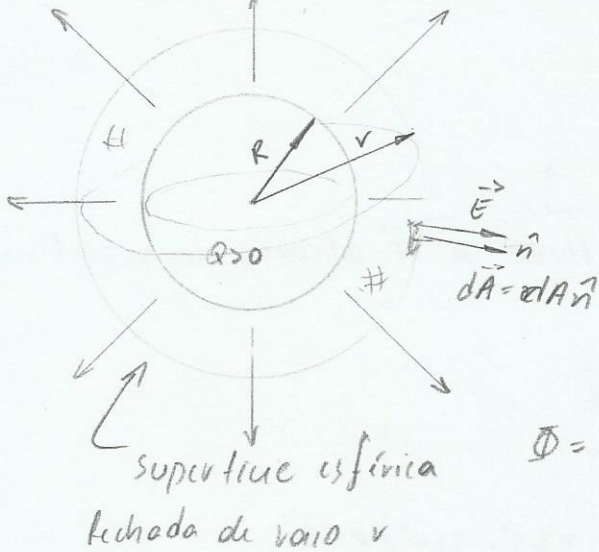 #
R
r
E⃗
Q>0
n̂
#
dA⃗ = dA n̂
Φ =
superfície esférica
fechada de raio r